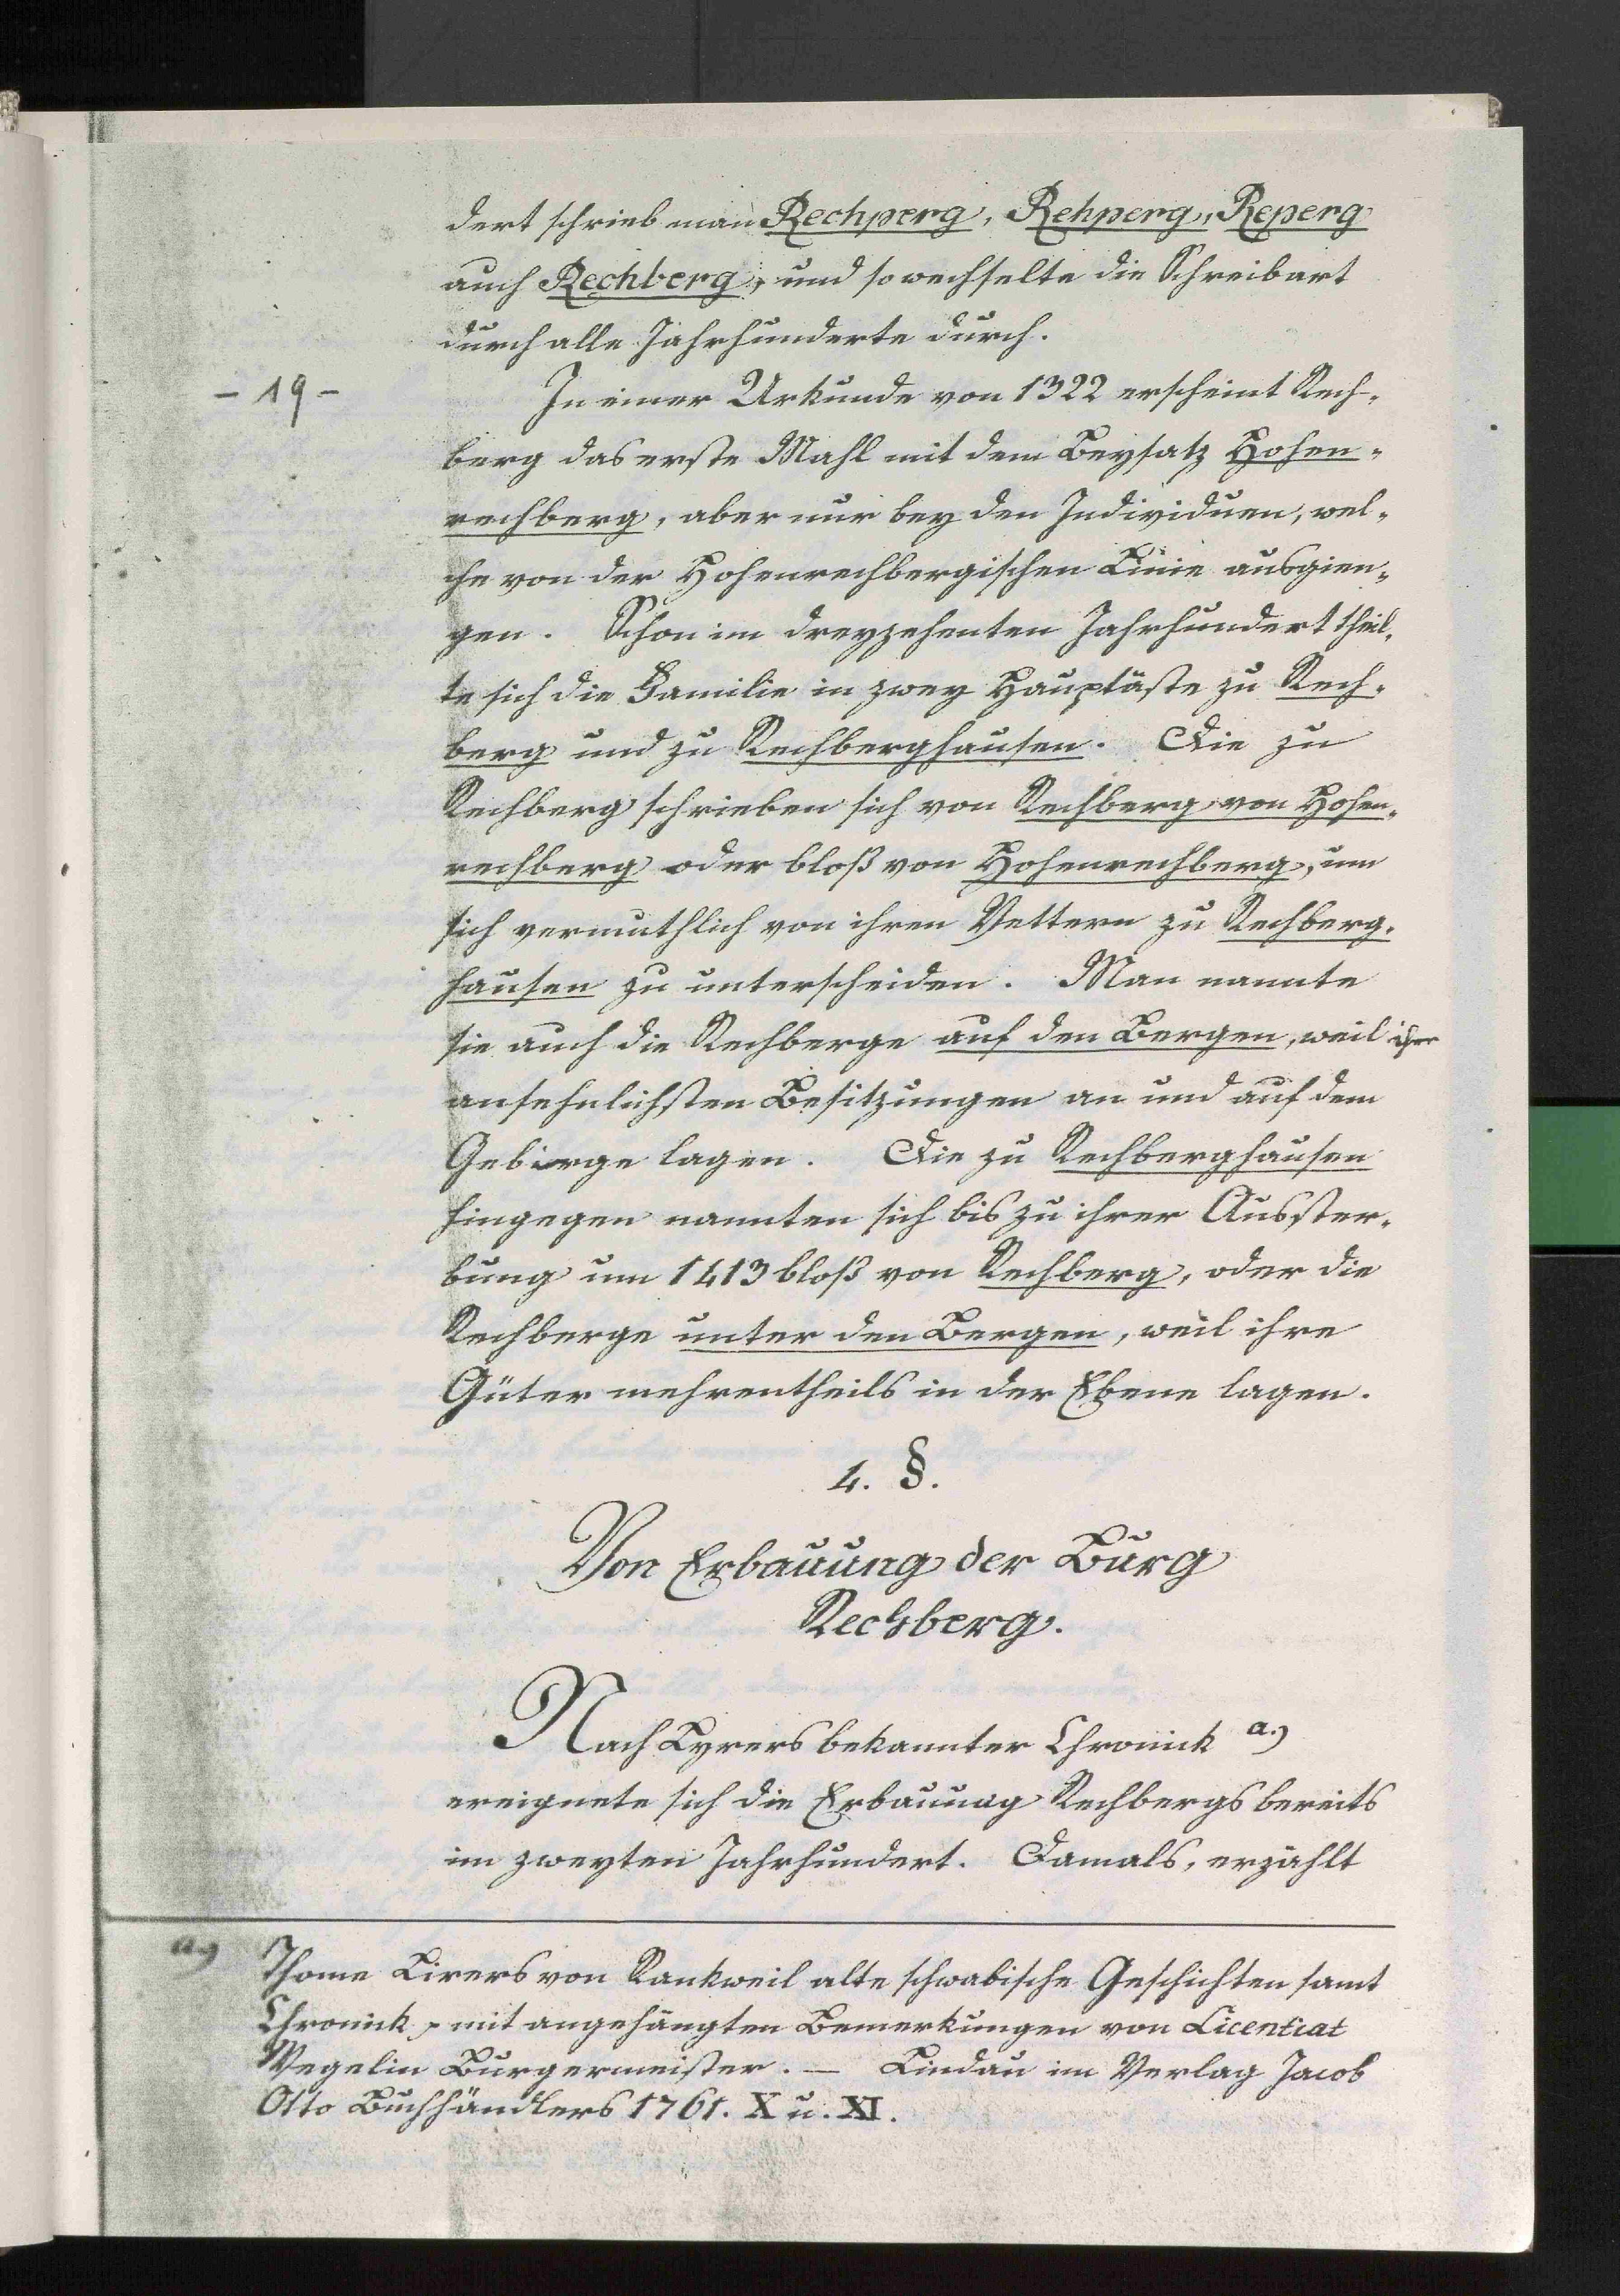 dert schrieb man Rechperg, Rehperg, Reperg
auch Rechberg, und so wechselte die Schreibart
durch alle Jahrhunderte durch.
- 19 -
In einer Urkunde von 1322 erscheint Rech-
berg das erste Mahl mit dem Beysatz Hohen-
rechberg, aber nur bey den Individuen, wel-
che von der Hohenrechbergischen Linie ausgien-
gen. Schon im dreyzehenten Jahrhundert theil-
te sich die Familie in zwey Hauptäste zu Rech-
berg und zu Rechberghausen. Die zu
Rechberg schrieben sich von Rechberg von Hohen-
rechberg oder bloß von Hohenrechberg, um
sich vermuthlich von ihren Vettern zu Rechberg-
hausen zu unterscheiden. Man nannte
sie auch die Rechberge auf den Bergen, weil ihre
ansehnlichsten Besitzungen an und auf dem
Gebirge lagen. Die zu Rechberghausen
hingegen nannten sich bis zu ihrer Ausster-
bung um 1413 bloß von Rechberg, oder die
Rechberge unter den Bergen, weil ihre
Güter mehrentheils in der Ebene lagen.
4. §.
Von Erbauung der Burg
Rechberg.
Nach Lyrers bekannter Chronick a.)
ereignete sich die Erbauung Rechbergs bereits
im zweyten Jahrhundert. Damals, erzählt
a.) Thome Lirers von Rankweil alte schwabische Geschichten samt
Chronick, mit angehängten Bemerkungen von Licentiat
Wegelin Burgermeister. — Lindau im Verlag Jacob
Otto Buchhändlers 1761. X u. XI.